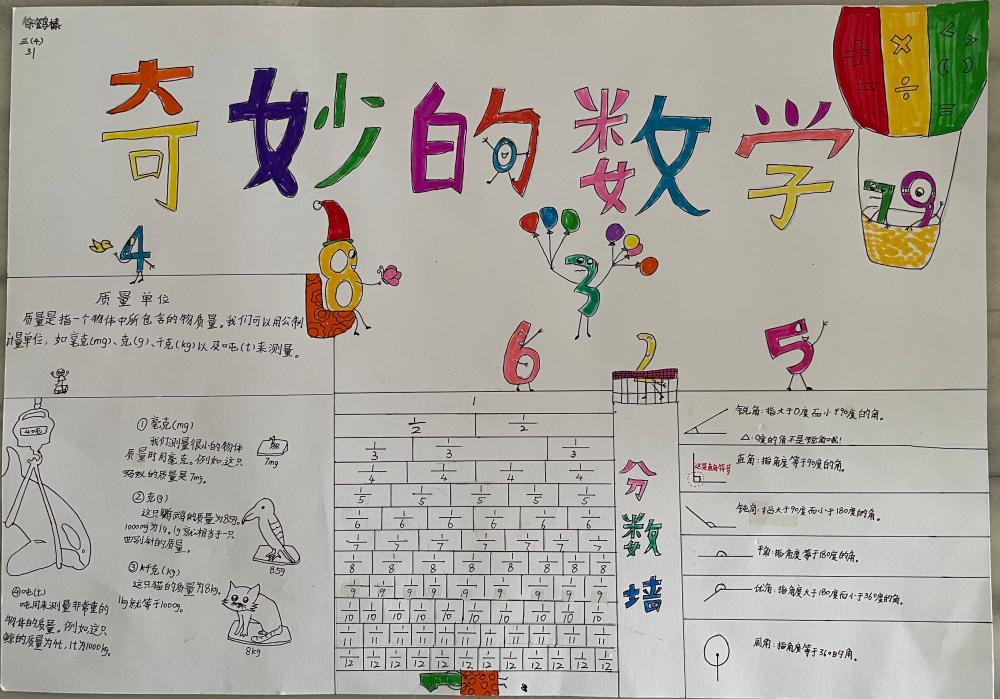 三(4)
31
奇妙的数学
质量单位
质量是指一个物体中所包含的物质量。我们可以用公制
计量单位，如毫克(mg)、克(g)、千克(kg)以及吨(t)来测量。
① 毫克(mg)
我们测量很小的物体
质量时用毫克。例如，这只
蚂蚁的质量是7mg。
7mg
② 克(g)
这只鹦鹉的质量为85g。
1000mg为1g。1g就相当于一只
回形针的质量。
85g
③ 千克(kg)
这只猫的质量为8kg。
1kg就等于1000g。
8kg
④吨(t)
吨用来测量非常重的
物体的质量。例如，这只
鲸的质量为4t，1t为1000kg。
1
1/2 1/2
1/3 1/3 1/3
1/4 1/4 1/4 1/4
1/5 1/5 1/5 1/5 1/5
1/6 1/6 1/6 1/6 1/6 1/6
1/7 1/7 1/7 1/7 1/7 1/7 1/7
1/8 1/8 1/8 1/8 1/8 1/8 1/8 1/8
1/9 1/9 1/9 1/9 1/9 1/9 1/9 1/9 1/9
1/10 1/10 1/10 1/10 1/10 1/10 1/10 1/10 1/10 1/10
1/11 1/11 1/11 1/11 1/11 1/11 1/11 1/11 1/11 1/11 1/11
1/12 1/12 1/12 1/12 1/12 1/12 1/12 1/12 1/12 1/12 1/12 1/12
分数墙
锐角：指大于0度而小于90度的角。
△：0度的角不是锐角哦！
直角：指角度等于90度的角。
这是直角符号
钝角：指大于90度而小于180度的角。
平角：指角度等于180度的角。
优角：指角度大于180度而小于360度的角。
周角：指角度等于360的角。